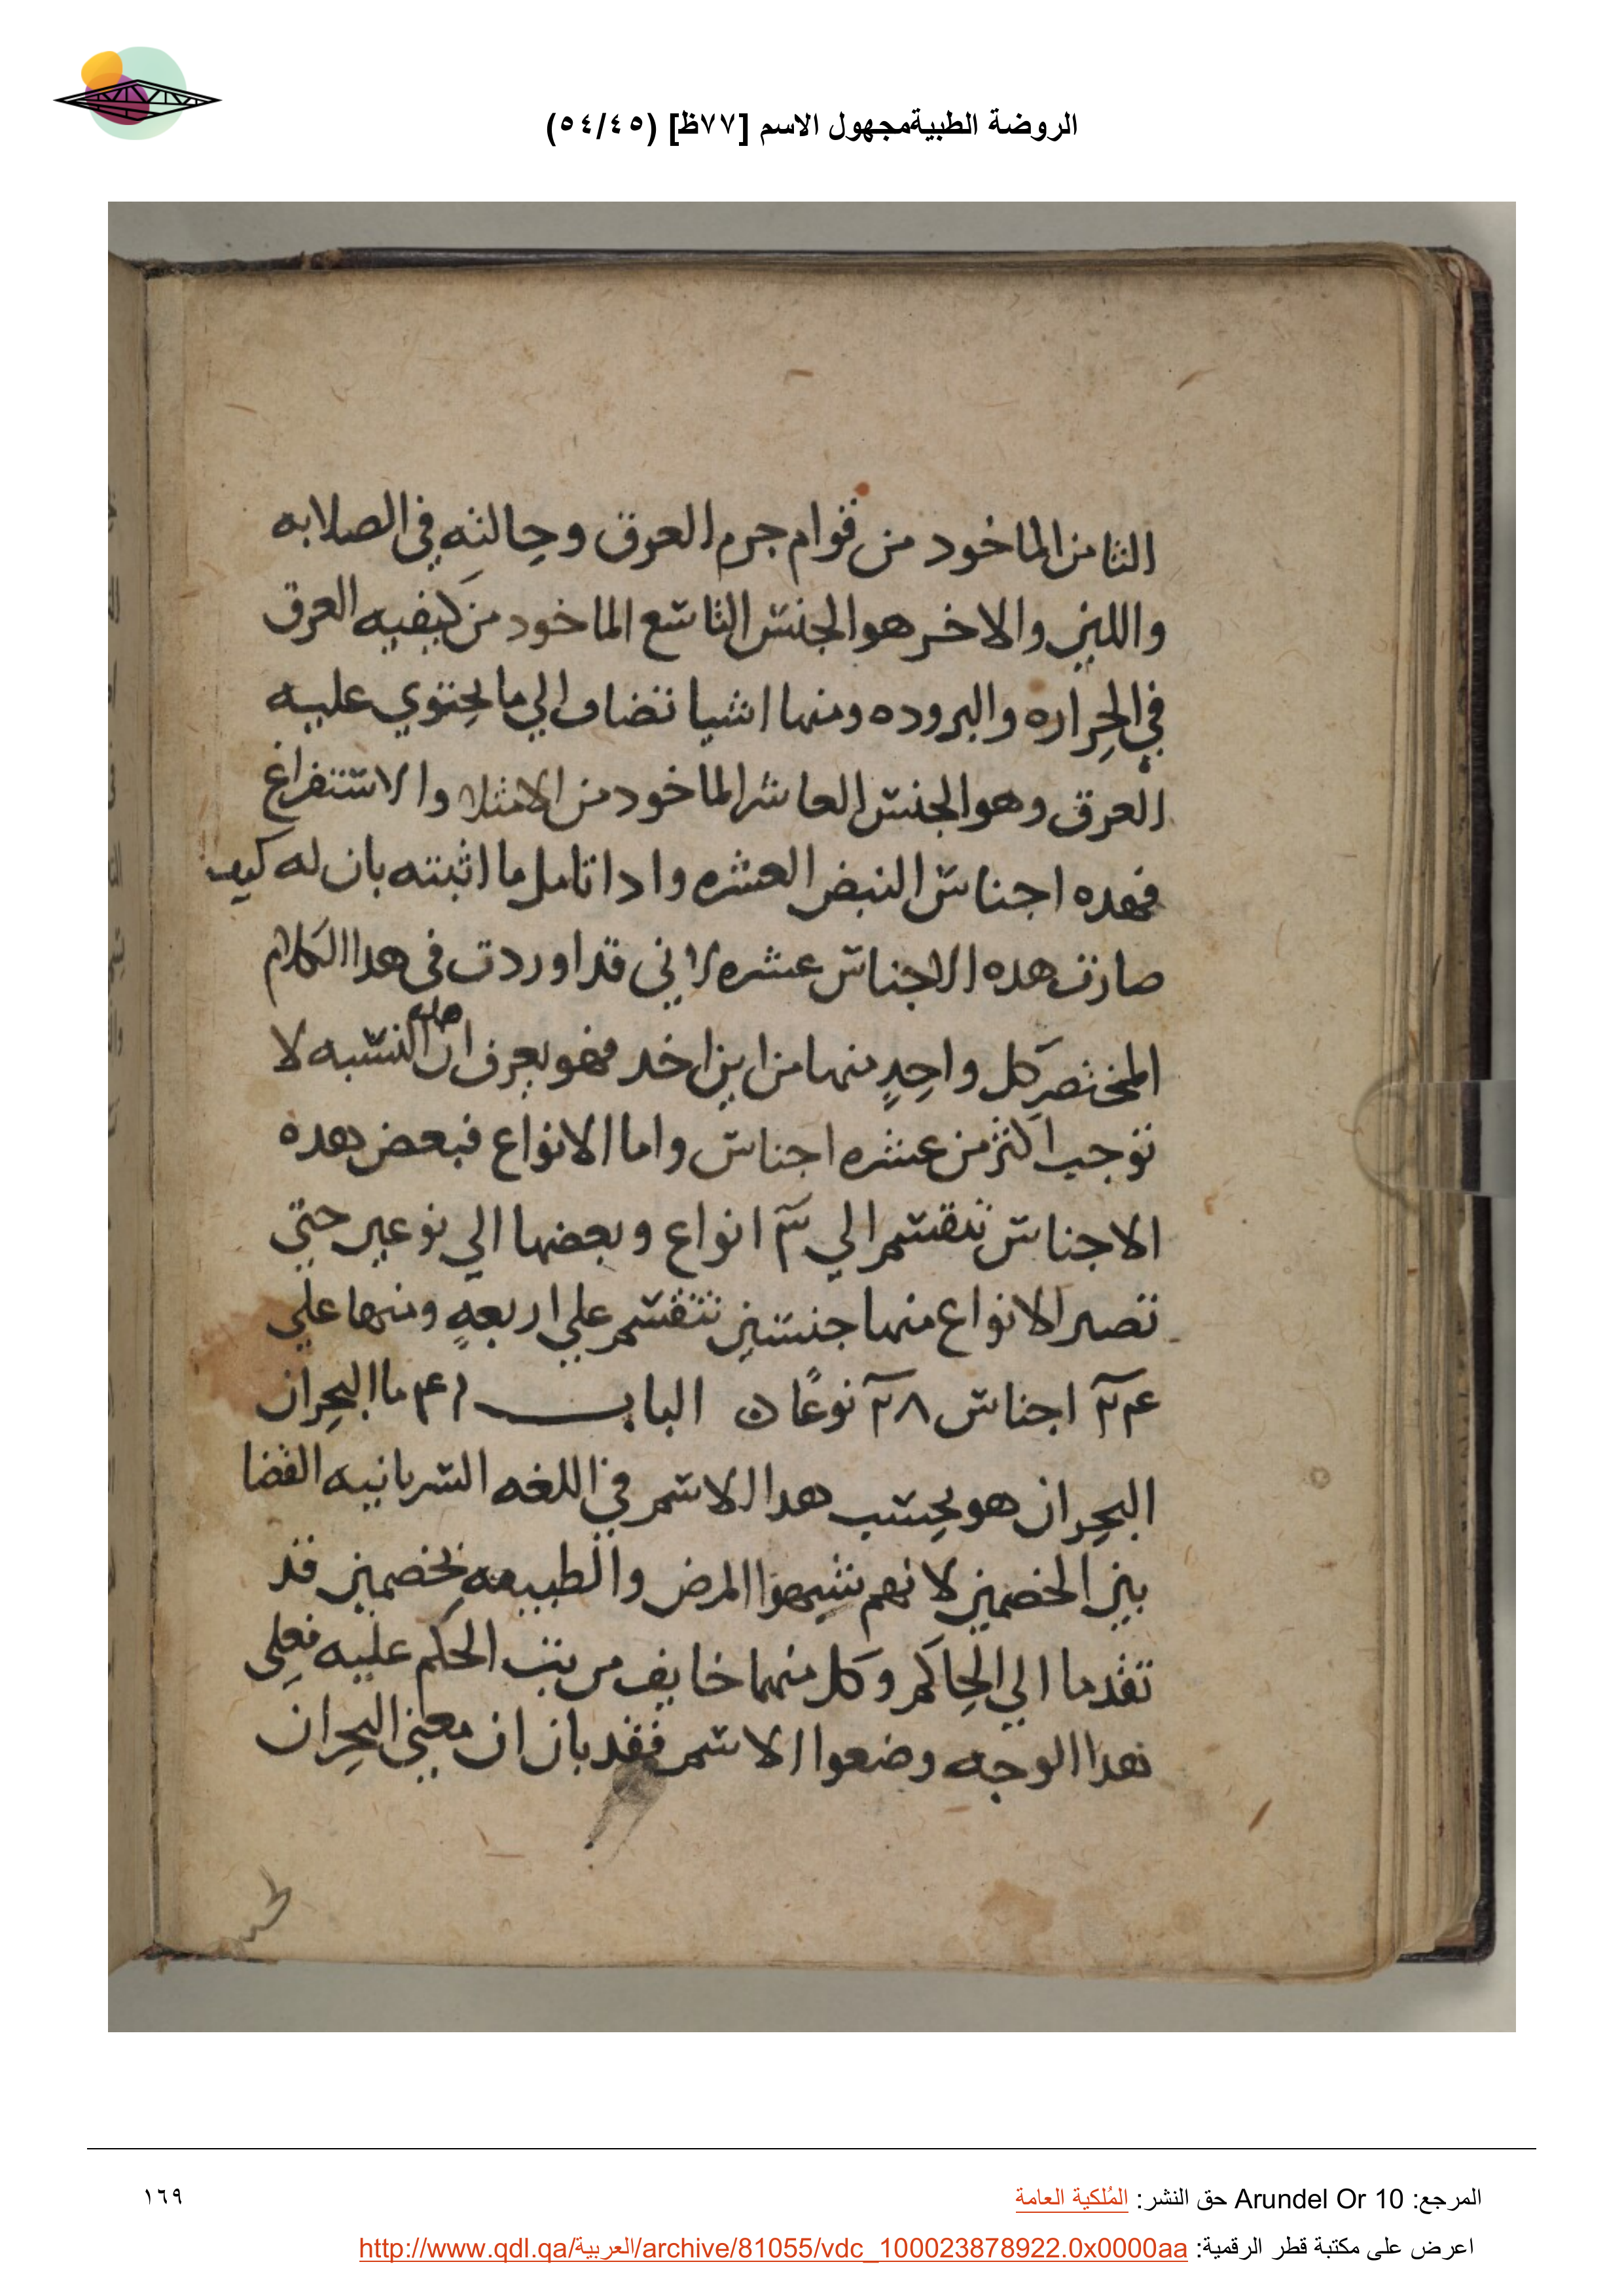 الروضة الطبيةمجهول الاسم [٧٧ظ] (٥٤/٤٥)
الثامن الماخود من قوام جرم العرق وحالته في الصلابه
واللين والاخر هو الجنس التاسع الماخود من كيفيه العرق
في الحراره والبروده ومنها اشيا تضاف الي ما يحتوي عليه
العرق وهو الجنس العاشر الماخود من الامتلا والاستفراغ
فهده اجناس النبض العشره وادا تامل ما اثبته بان له كيف
صارت هده الاجناس عشره لاني قد اوردت في هدا الكلام
المختصر كل واحدٍ منها من اين اخد فهو يعرف ان هده النسبه لا
توجب اكثر من عشره اجناس واما الانواع فبعض هده
الاجناس تنقسم الي ٣ انواع وبعضها الي نوعين حتي
تصير الانواع منها جنسين تنقسم علي اربعهٍ ومنها علي
اجناس ٢٨ نوعًا الباب ما البحران
البحران هو بحسب هدا الاسم في اللغه السريانيه القضا
بين الخصمين لانهم شبهوا المرض والطبيعه بخصمين قد
تقدما الي الحاكم وكل منهما خايف من الحكم عليه فعلي
هدا الوجه وضعوا الاسم فقد بان ان معني البحران
المرجع: Arundel Or 10 حق النشر: المُلكية العامة
١٦٩
اعرض على مكتبة قطر الرقمية: http://www.qdl.qa/العربية/archive/81055/vdc_100023878922.0x0000aa